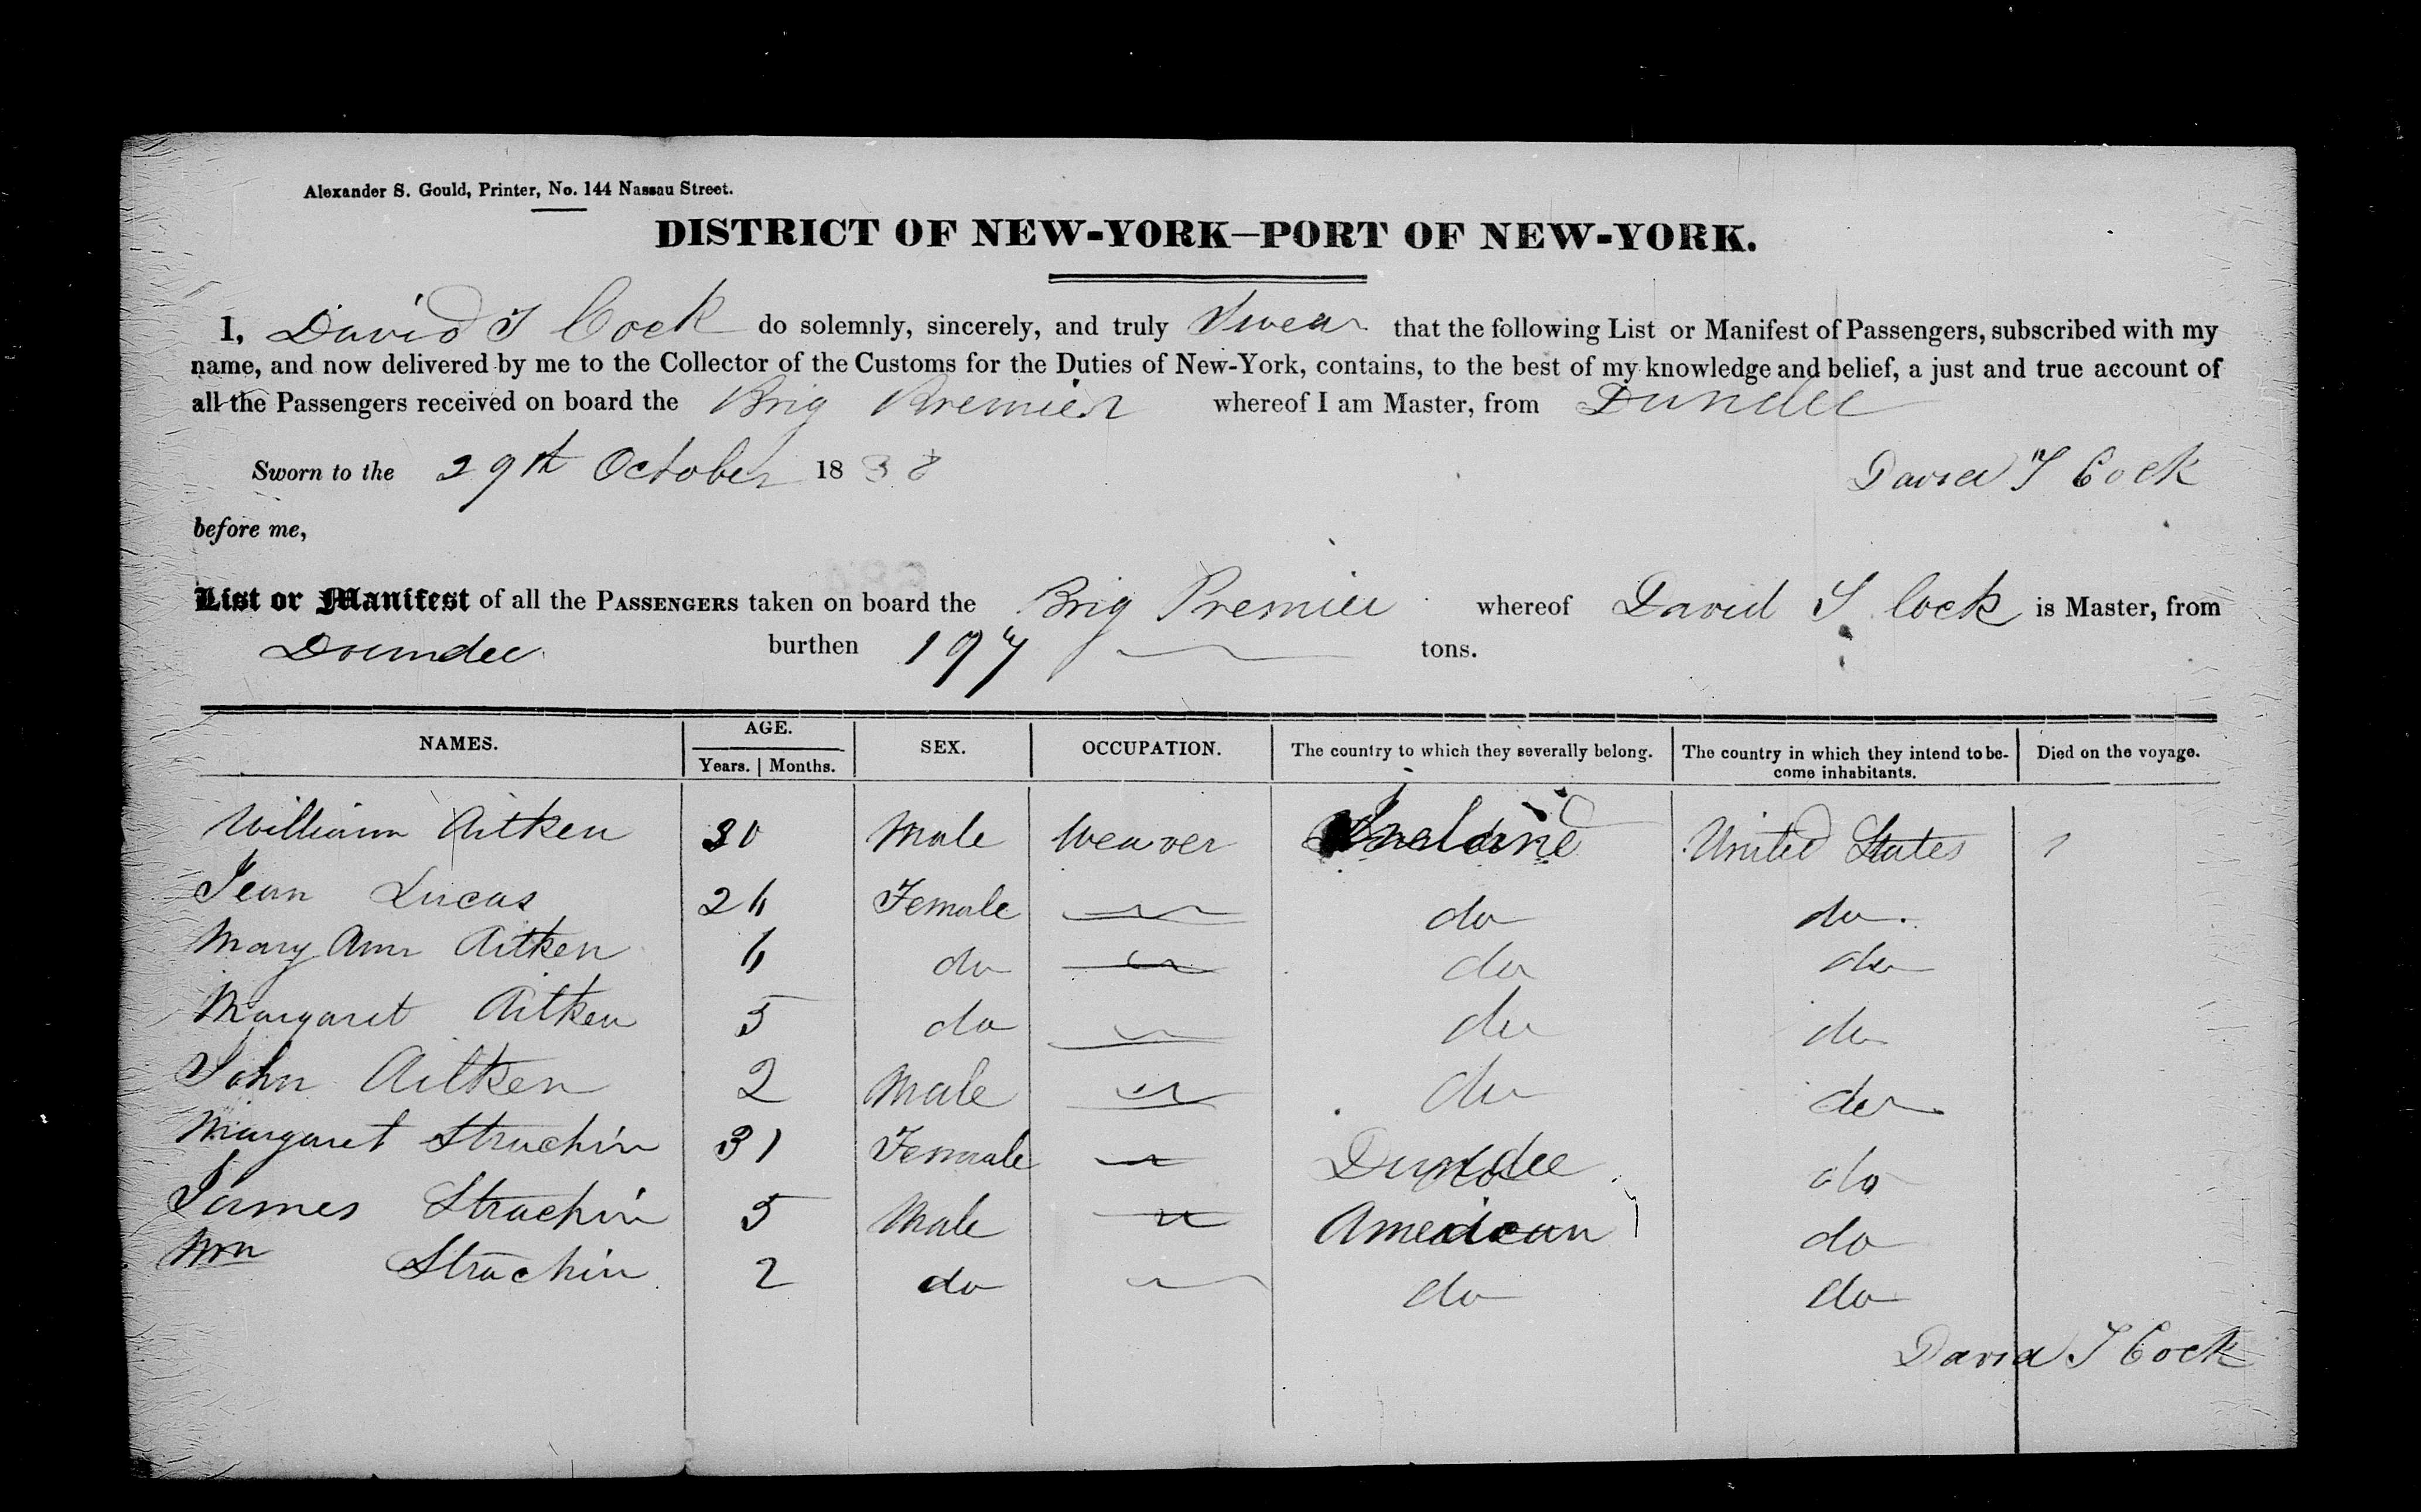 Alexander S. Gould, Printer, No. 144 Nassau Street.
DISTRICT OF NEW-YORK—PORT OF NEW-YORK.
I, David T Cock do solemnly, sincerely, and truly Swear that the following List or Manifest of Passengers, subscribed with my
name, and now delivered by me to the Collector of the Customs for the Duties of New-York, contains, to the best of my knowledge and belief, a just and true account of
all the Passengers received on board the Brig Premier whereof I am Master, from Dundee
Sworn to the 29th October 1838 David T Cock
before me,
List or Manifest of all the PASSENGERS taken on board the Brig Premier whereof David T Cock is Master, from
Dundee burthen 197 tons.
NAMES. AGE. SEX. OCCUPATION. The country to which they severally belong. The country in which they intend to be- Died on the voyage.
Years. | Months. come inhabitants.
William Aitken 30 Male Weaver United States
Jean Lucas 26 Female do do.
Mary Ann Aitken 6 do do do
Margaret Aitken 5 do do do
John Aitken 2 Male do do
Margaret Strachin 31 Female Dundee do
James Strachin 5 Male American do
Wm Strachin 2 do do do
David T Cock